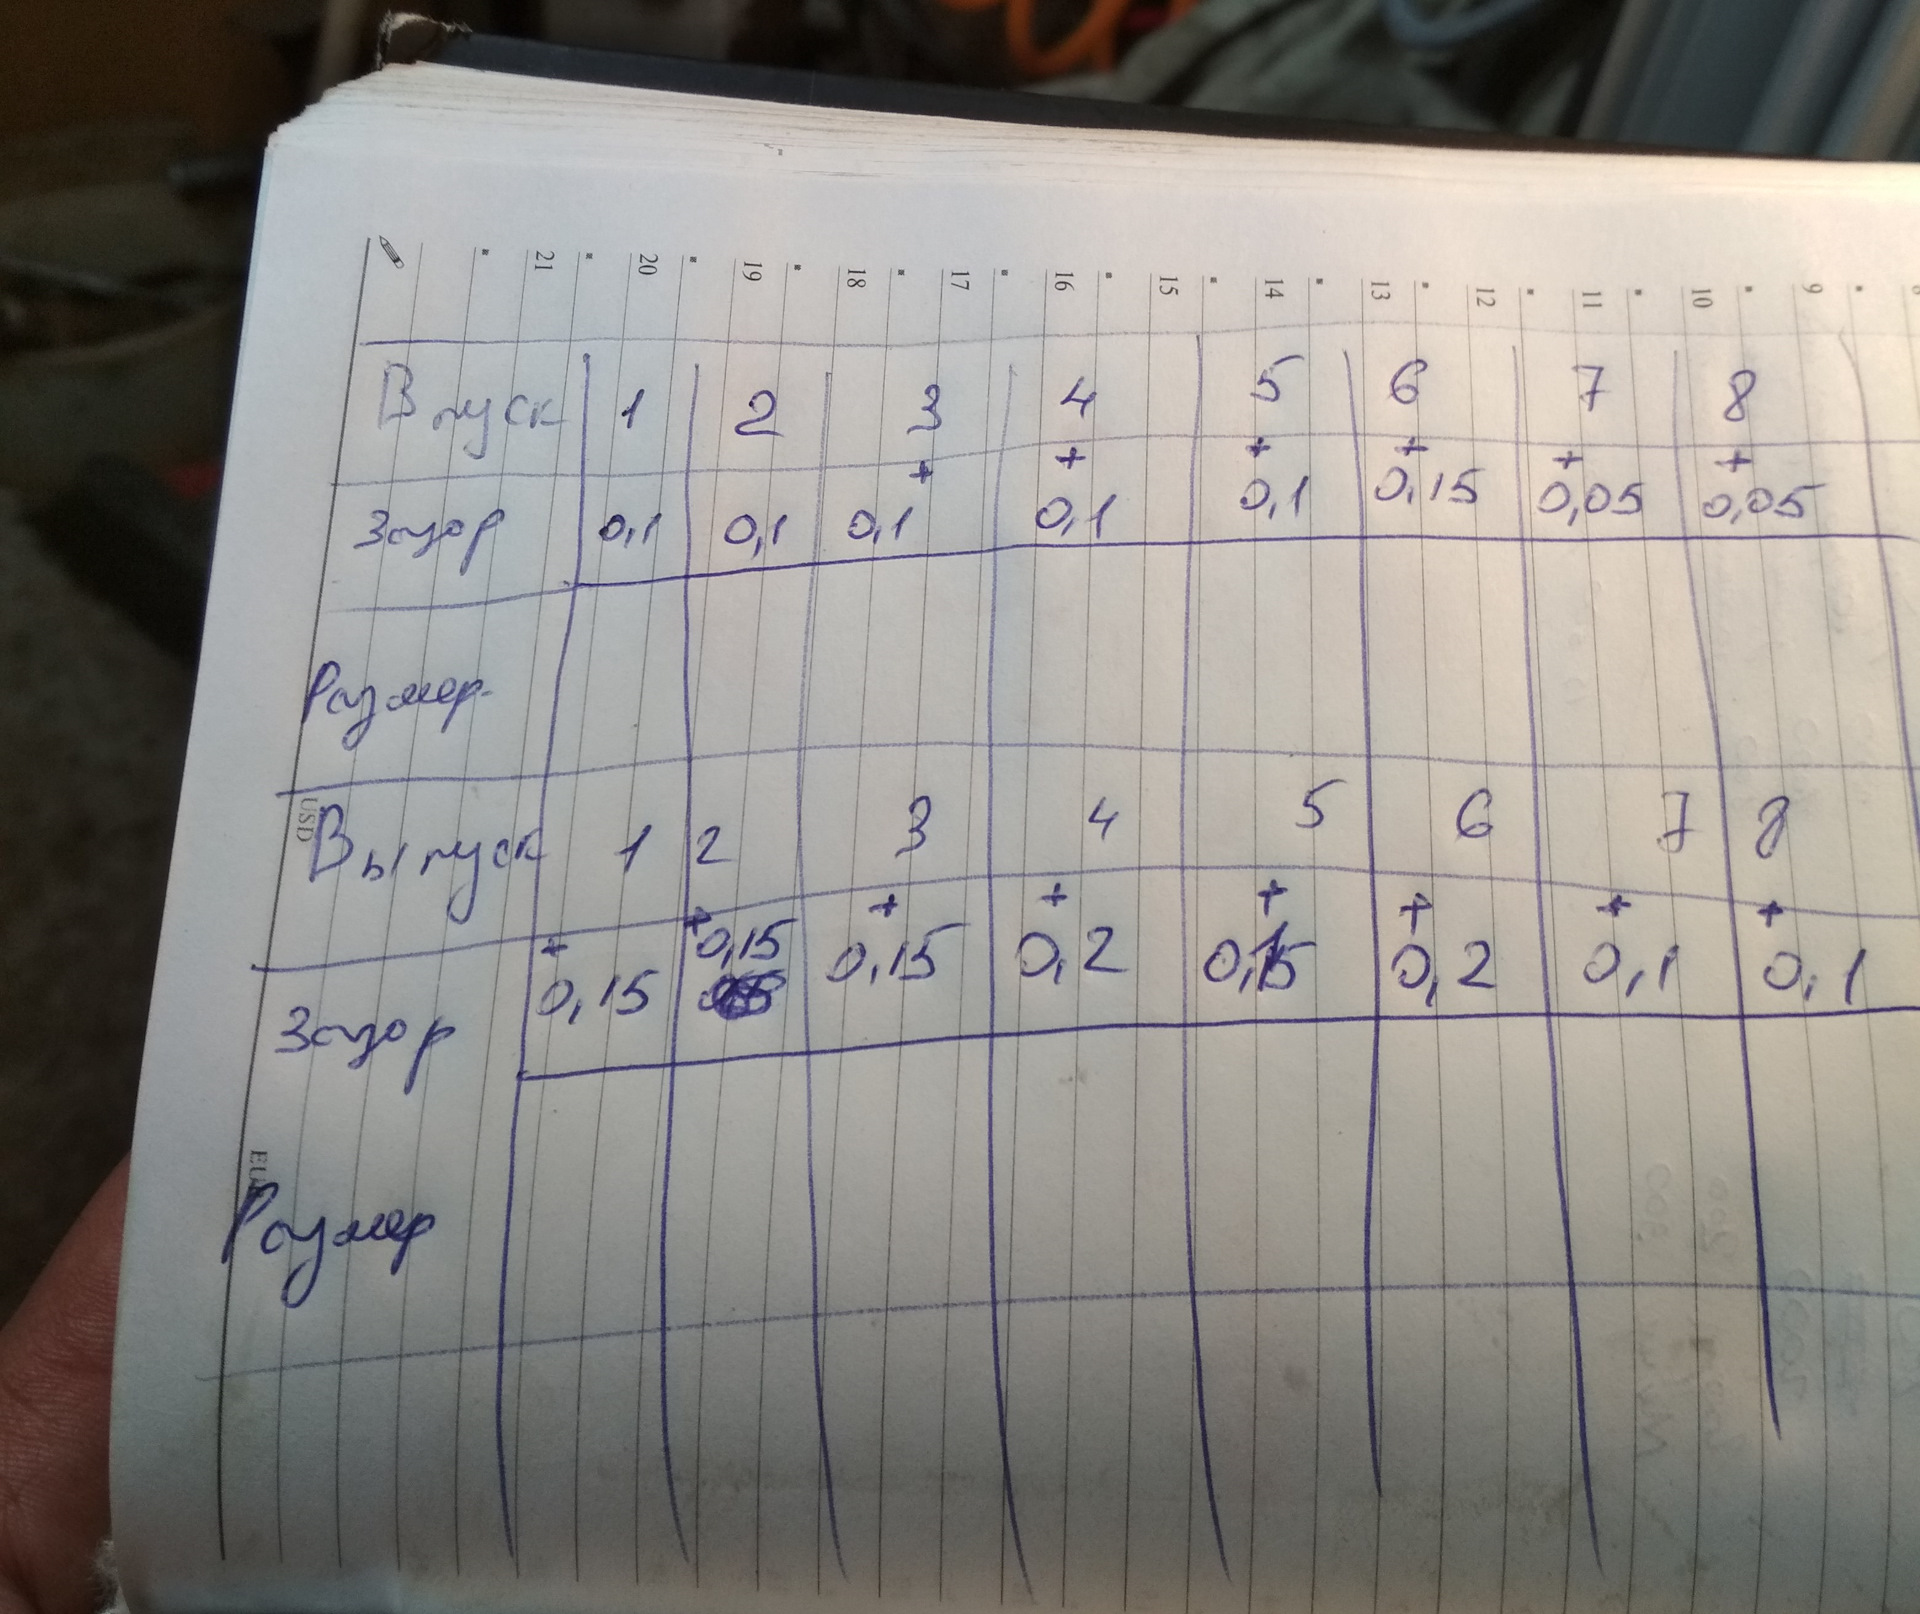 21 20 19 18 17 16 15 14 13 12 11 10 9 8
Впуск 1 2 3 4 5 6 7 8
+ + + + + +
Зазор 0,1 0,1 0,1 0,1 0,1 0,15 0,05 0,05
Размер
USD
Выпуск 1 2 3 4 5 6 7 8
+ + + + + + + +
Зазор 0,15 0,15 0,15 0,2 0,15 0,2 0,1 0,1
Размер